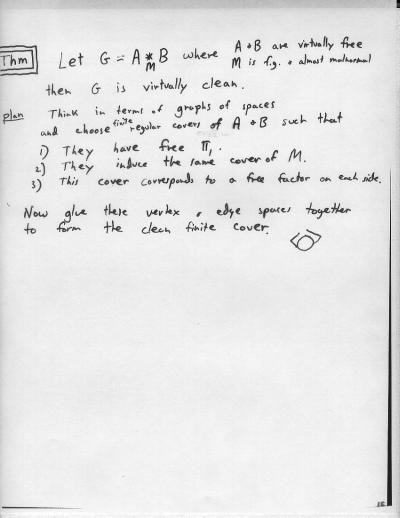 Thm Let G = A *_M B where A & B are virtually free
M is f.g. & almost malnormal
then G is virtually clean.
plan Think in terms of graphs of spaces
and choose finite regular covers of A & B such that
1) They have free π₁.
2) They induce the same cover of M.
3) This cover corresponds to a free factor on each side.
Now glue these vertex & edge spaces together
to form the clean finite cover.